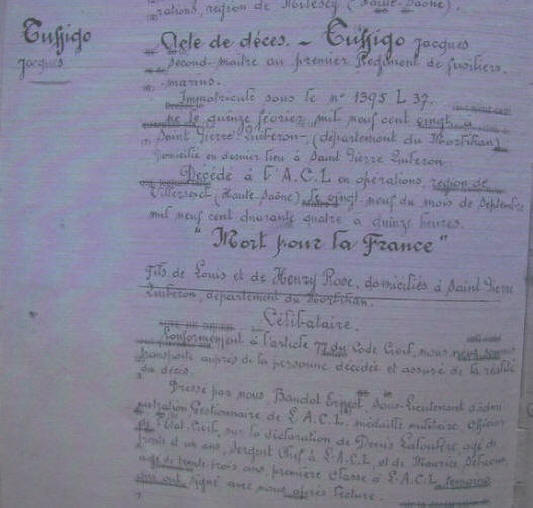 rations, région de (Haute-Saône).
Tuffigo
Jacques
Acte de décès. - Tuffigo Jacques
Second-maître au premier Régiment de fusiliers.
marins.
Immatriculé sous le n° 1395 L 37.
né le quinze février mil neuf cent vingt à
Saint Pierre Quiberon - (département du Morbihan)
domicilié en dernier lieu à Saint Pierre Quiberon.
Décédé à l'A.C.L en opérations, région de
Villersexel (Haute-Saône) le vingt neuf du mois de Septembre
mil neuf cent quarante quatre à quinze heures.
"Mort pour la France"
Fils de Louis et de Henry Rose, domiciliés à Saint Pierre
Quiberon, département du Morbihan.
Célibataire.
Conformément à l'article 77 du Code Civil, nous nous sommes
transporté auprès de la personne décédée et assuré de la réalité
du décès.
Dressé par nous, Baudot Ernest, Sous-Lieutenant d'admi
nistration Gestionnaire de L'A.C.L. médaille militaire, officier
de l'état Civil, sur la déclaration de Denis, âgé de
trente et un ans, Sergent Chef à L'A.C.L, et de Maurice
âgé de trente trois ans, première classe à L'A.C.L, témoins
qui ont signé avec nous après lecture.